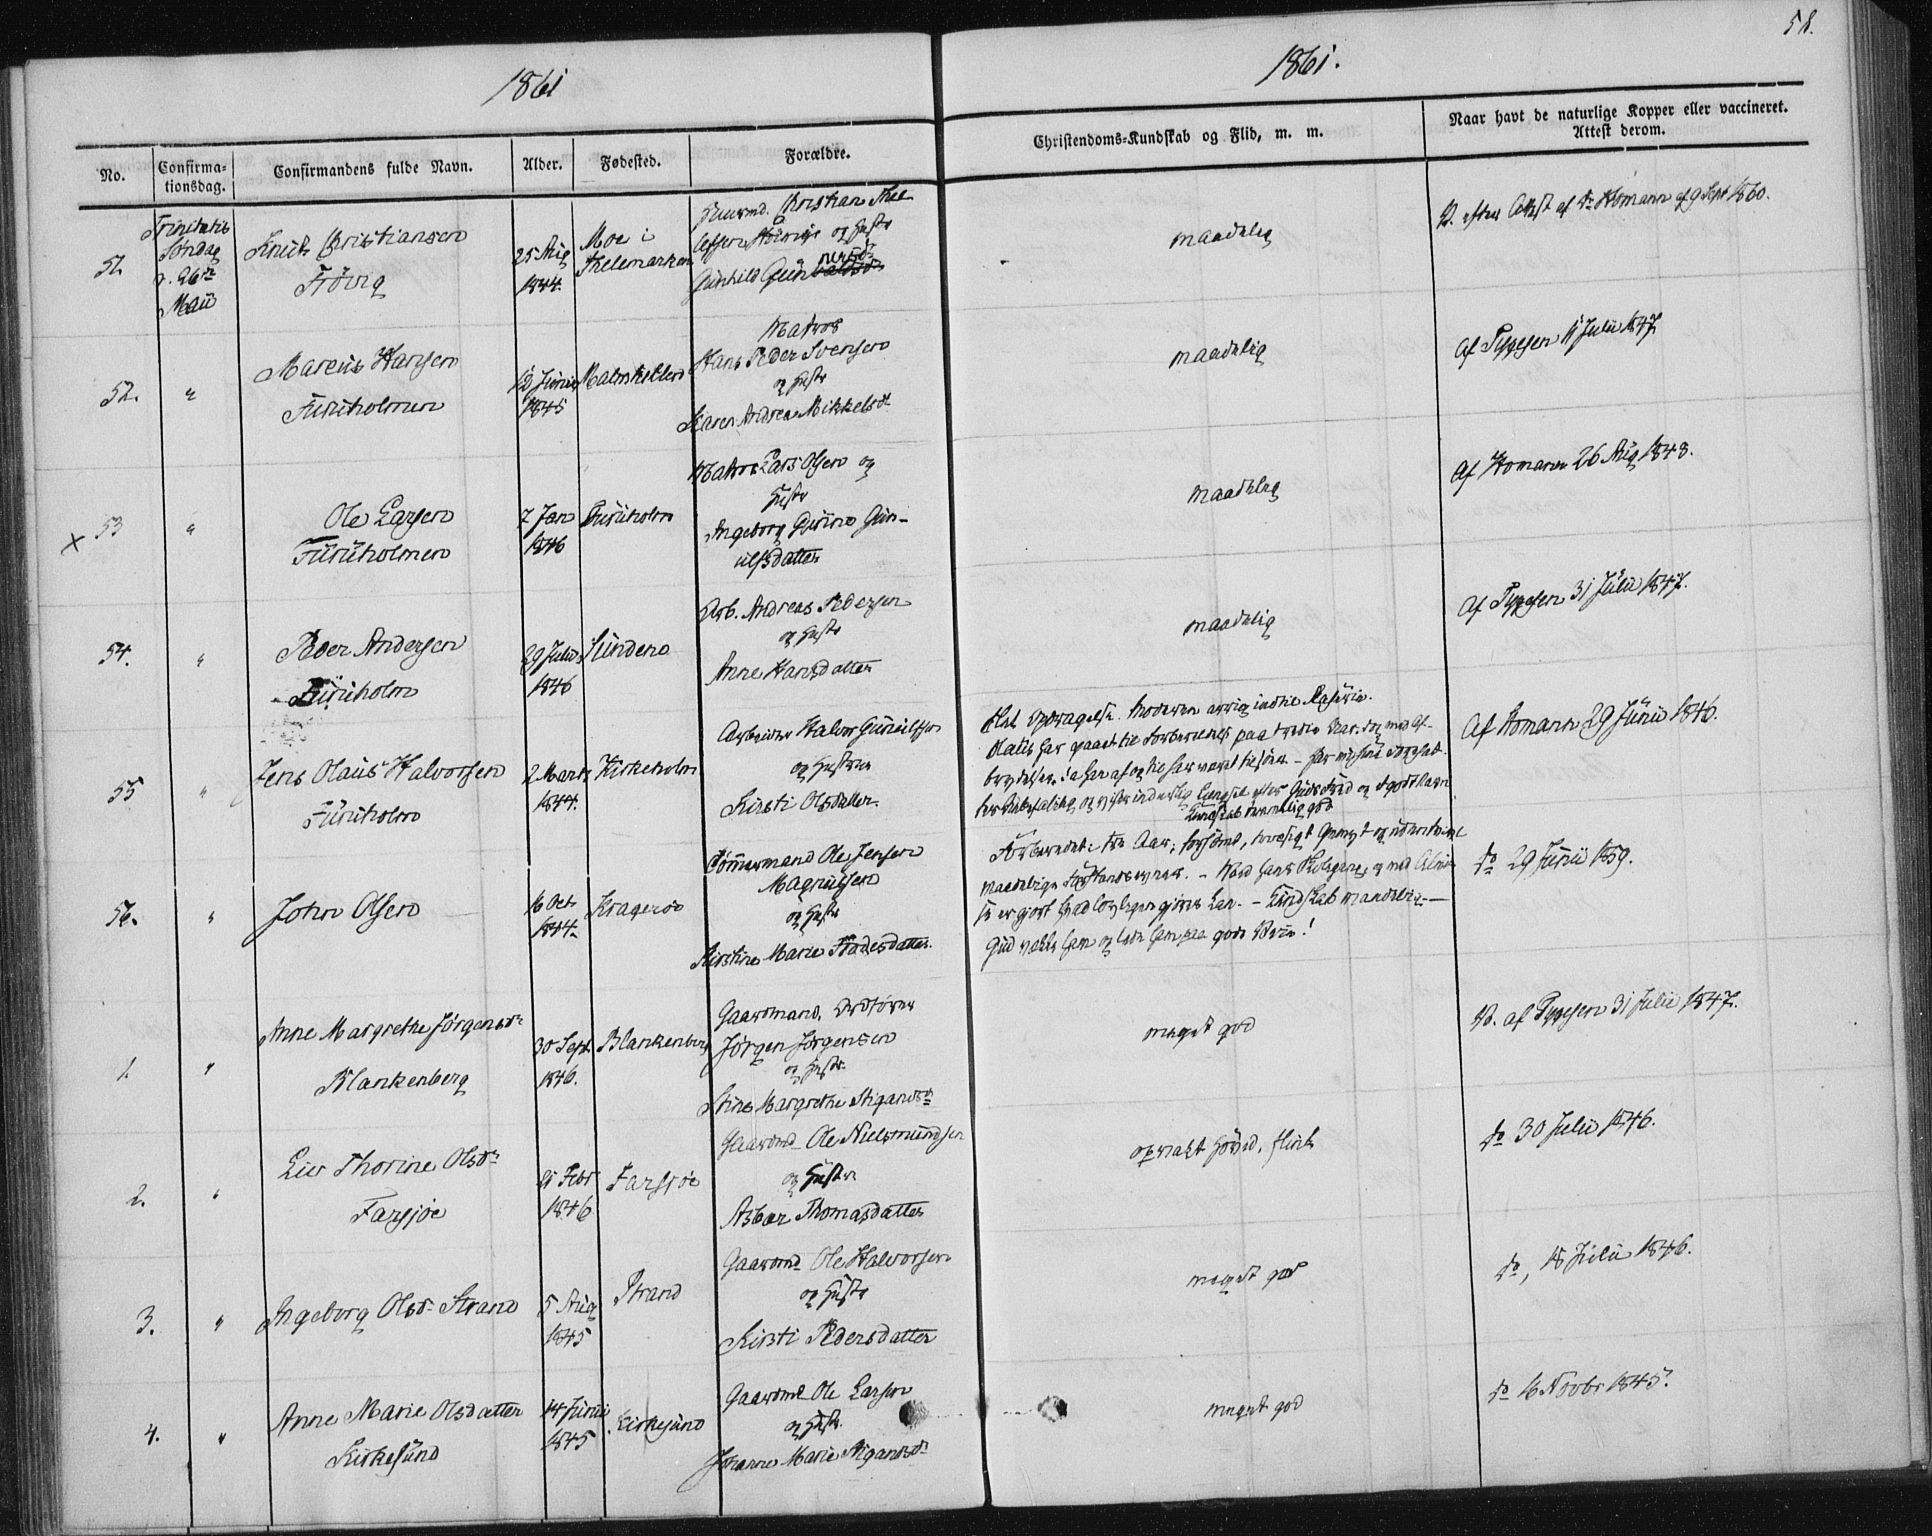 58.
1861
1861.
No.
Confirma-
tionsdag.
Confirmandens fulde Navn.
Alder.
Fødested.
Forældre.
Christendoms-Kundskab og Flid, m. m.
Naar havt de naturlige Kopper eller vaccineret.
Attest derom.
51.
Trinitatis
Søndag
d. 26de
Maii
Knut Christiansen
Frövig
25 Aug
1844.
Moe i
Thelemarken
Christian
og Hustr
Gunhild
maadelig
V. efter Attest af Dr Homann af 9 Sept 1860.
52.
"
Marcus Hansen
Furuholmen
12 Junii
1845
Malmhellen
Matros
Hans Peder Svensen
og Hustr
Karen Andrea Mikkelsdr
maadelig
Af Tyggesen 11 Julii 1847
x 53
"
Ole Larsen
Furuholmen
7 Jan
1846
Furuholm
Matros Lars Olsen og
Hustr
Ingeborg Gurine Gun-
ulfsdatter
maadelig
Af Homann 26 Aug 1848.
54.
"
Peder Andersen
Furuholm
29 Julii
1846
Sundene
Arb. Andreas Pedersen
og Hustr
Anne Hansdatter
maadelig
Af Tyggesen 31 Julii 1847.
55
"
Jens Olaus Halvorsen
Furuholm
2 Marts
1844.
Kirkeholm
Arbeider Halvor Gunulfsen
og Hustrue
Kirsti Olsdatter.
Slet Opdragelse. Moderen arrig indtil Raserie.
Olaus har gaaet til Forberedelse paa tredie Aar, dog med Af-
brydelser, da han af og til har været tilsöes. -
og
Kundskab temmelig god
Af Homann 29 Junii 1846.
56.
"
John Olsen
16 Oct
1844.
Krageröe
Tömmermand Ole Jensen
Magnussen
og Hustr
Kirstine Marie Frodesdatter.
Forberedet i tre Aar; forsömt,
maadelige Forstandsevner. -
er gjort hvad som gjöres kan. - Kundskab maadelig -
Gud vække ham og lede ham paa gode Veie!
do 29 Junii 1859.
1.
"
Anne Margrethe Jörgensdr
Blankenberg
30 Sept.
1846.
Blankenberg
Gaardmand, Ordförer
Jörgen Jörgensen
og Hustr.
Stine Margrethe Stigandsdr
meget god
V. af Tyggesen 31 Julii 1847.
2.
"
Liv Thorine Olsdr
Farsjöe
21 Febr
1846
Farsjöe
Gaardmd Ole Nielsmundsen
og Hustr
Asbor Thomasdatter
opvakt Hoved, flink
do 30 Julii 1846.
3.
"
Ingeborg Olsdr Strand
5 Aug
1845
Strand
Gaardmd Ole Halvorsen
og Hustr
Kirsti Pedersdatter
meget god
do, 18 Julii 1846.
4.
"
Anne Marie Olsdatter
Kirkesund
14 Junii
1845
Kirkesund
Gaardmd Ole Larsen
og Hustr.
Johanne Marie Stigandsdr
meget god
do 16 Novbr 1845.